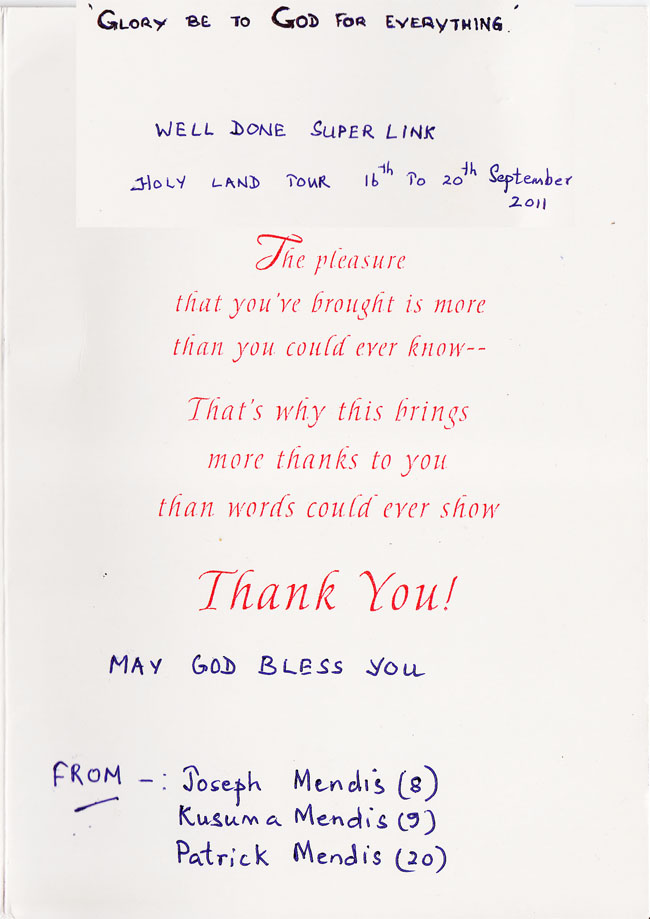 'GLORY BE TO GOD FOR EVERYTHING.'
WELL DONE SUPER LINK
HOLY LAND TOUR 16th TO 20th September
2011
The pleasure
that you've brought is more
than you could ever know--
That's why this brings
more thanks to you
than words could ever show
Thank You!
MAY GOD BLESS YOU
FROM -: Joseph Mendis (8)
Kusuma Mendis (9)
Patrick Mendis (20)